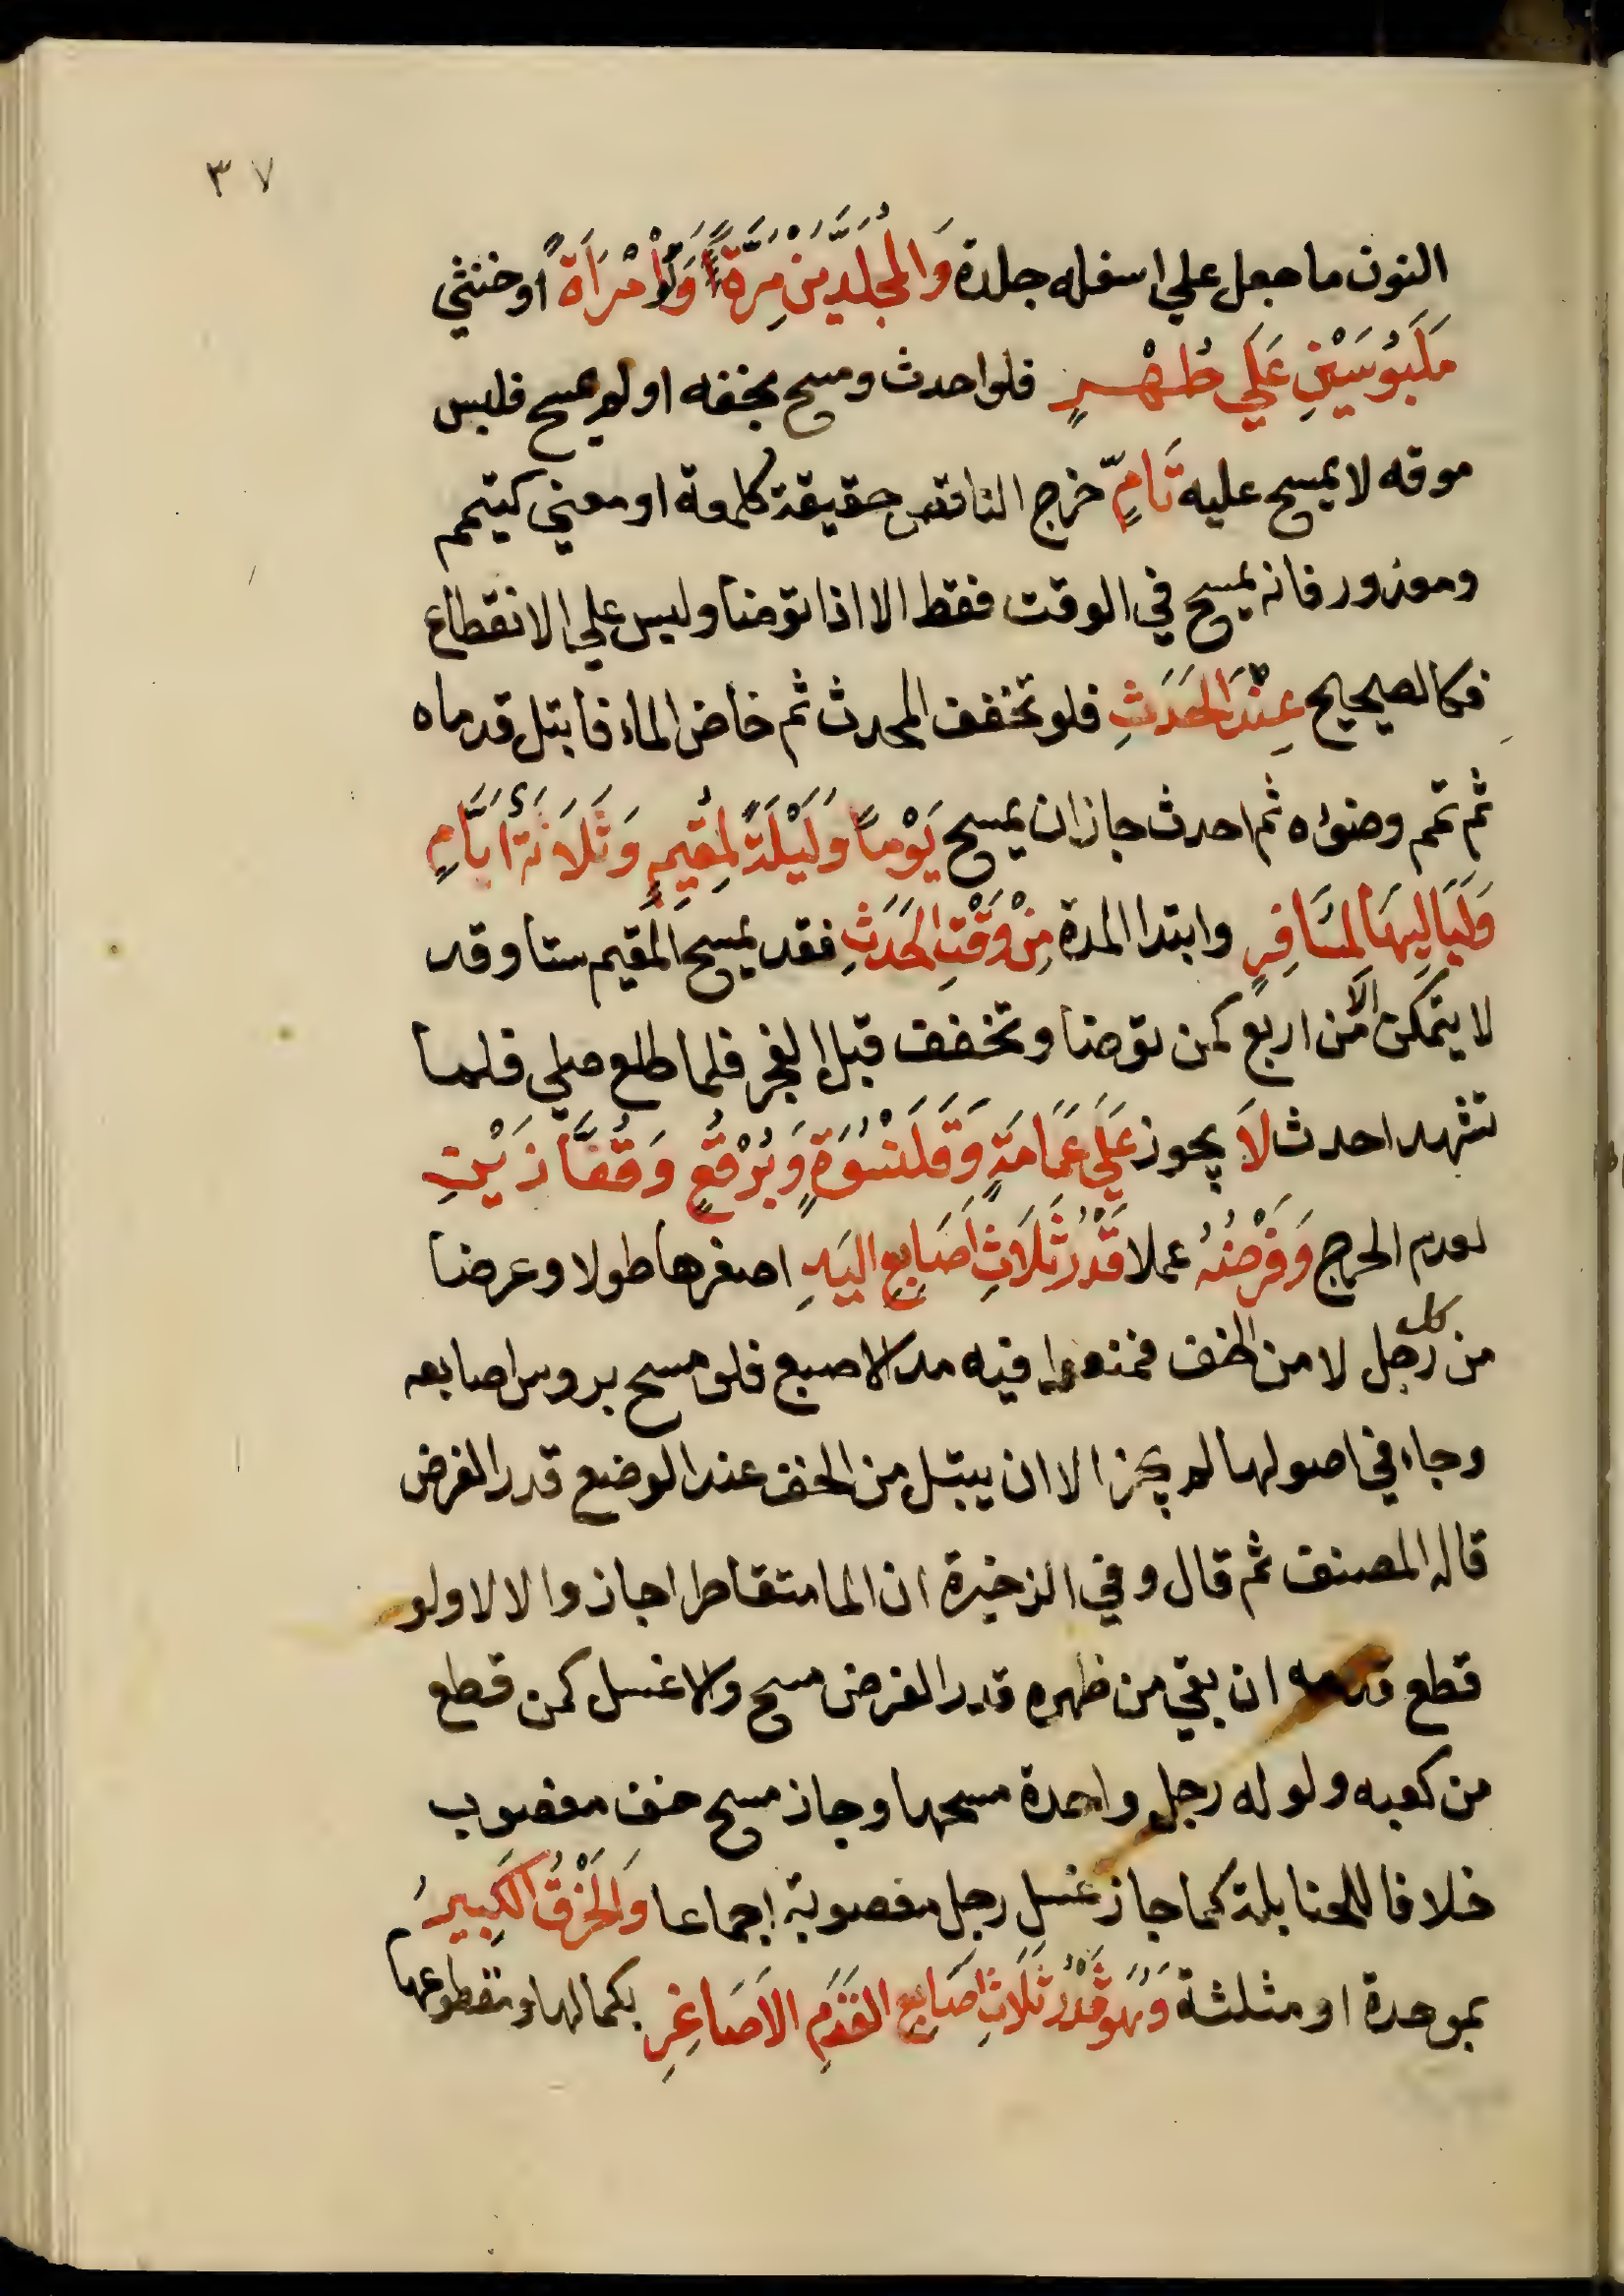 ٣٧
النون ما جعل على اسفله جلدة وَالمُجَلَّدَيْنِ مَرَّةً وَلَوْ امْرَأَةً او خنثي
مَلْبُوسَيْنِ عَلَي طُهْرٍ فلو احدث ومسح بخفه او لم يمسح فلبس
موقه لا يمسح عليه تَامٍّ خرج الناقص حقيقة كلمعة او معني كتيمم
ومعذور فانه يمسح في الوقت فقط الا اذا توضا ولبس علي الانقطاع
فكالصحيح عِنْدَ الحَدَثِ فلو تخفف المحدث ثم خاض الماء فابتل قدماه
ثم تمم وضوءه ثم احدث جاز ان يمسح يَوْماً وَلَيْلَةً لِمُقِيمٍ وَثَلَاثَةَ أَيَّامٍ
وَلَيَالِيهَا لِمُسَافِرٍ وابتدا المدة مِنْ وَقْتِ الحَدَثِ فقد يمسح المقيم ستا وقد
لا يتمكن الا من اربع كمن توضا وتخفف قبل الفجر فلما طلع صلي فلما
تشهد احدث لَا يجوز عَلَي عَمَامَةٍ وَقَلَنْسُوَةٍ وَبُرْقُعٍ وَقُفَّازَيْنِ
لعدم الحرج وَفَرْضُهُ عملا قَدْرُ ثَلَاثِ أَصَابِعِ اليَدِ اصغرها طولا وعرضا
من كل رجل لا من الخف فمنعوا فيه مد الاصبع فلو مسح بروس اصابعه
وجافي اصولها لم يجز الا ان يبتل من الخف عند الوضع قدر الفرض
قاله المصنف ثم قال وفي الذخيرة ان الما متقاطرا جاز والا لا ولو
قطع قدمه ان بقي من ظهره قدر الفرض مسح والا غسل كمن قطع
من كعبه ولو له رجل واحدة مسحها وجاز مسح خف مغصوب
خلافا للحنابلة كما جاز غسل رجل مغصوبة اجماعا وَالخَرْقُ الكَبِيرُ
بموحدة او مثلثة وَهُوَ قَدْرُ ثَلَاثِ أَصَابِعِ القَدَمِ الأَصَاغِرِ بكمالها ومقطوعها